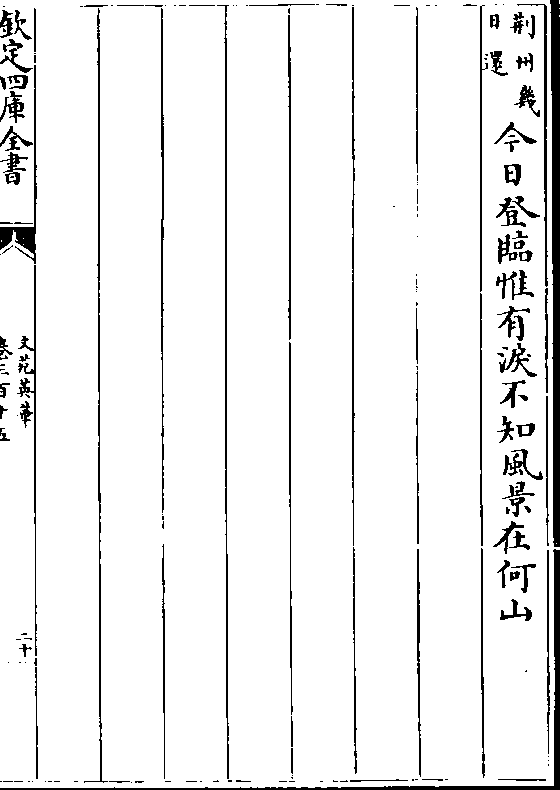 荆州幾
日還
今日登臨惟有淚不知風景在何山
欽定四庫全書
文苑英華
卷三百十五
二十